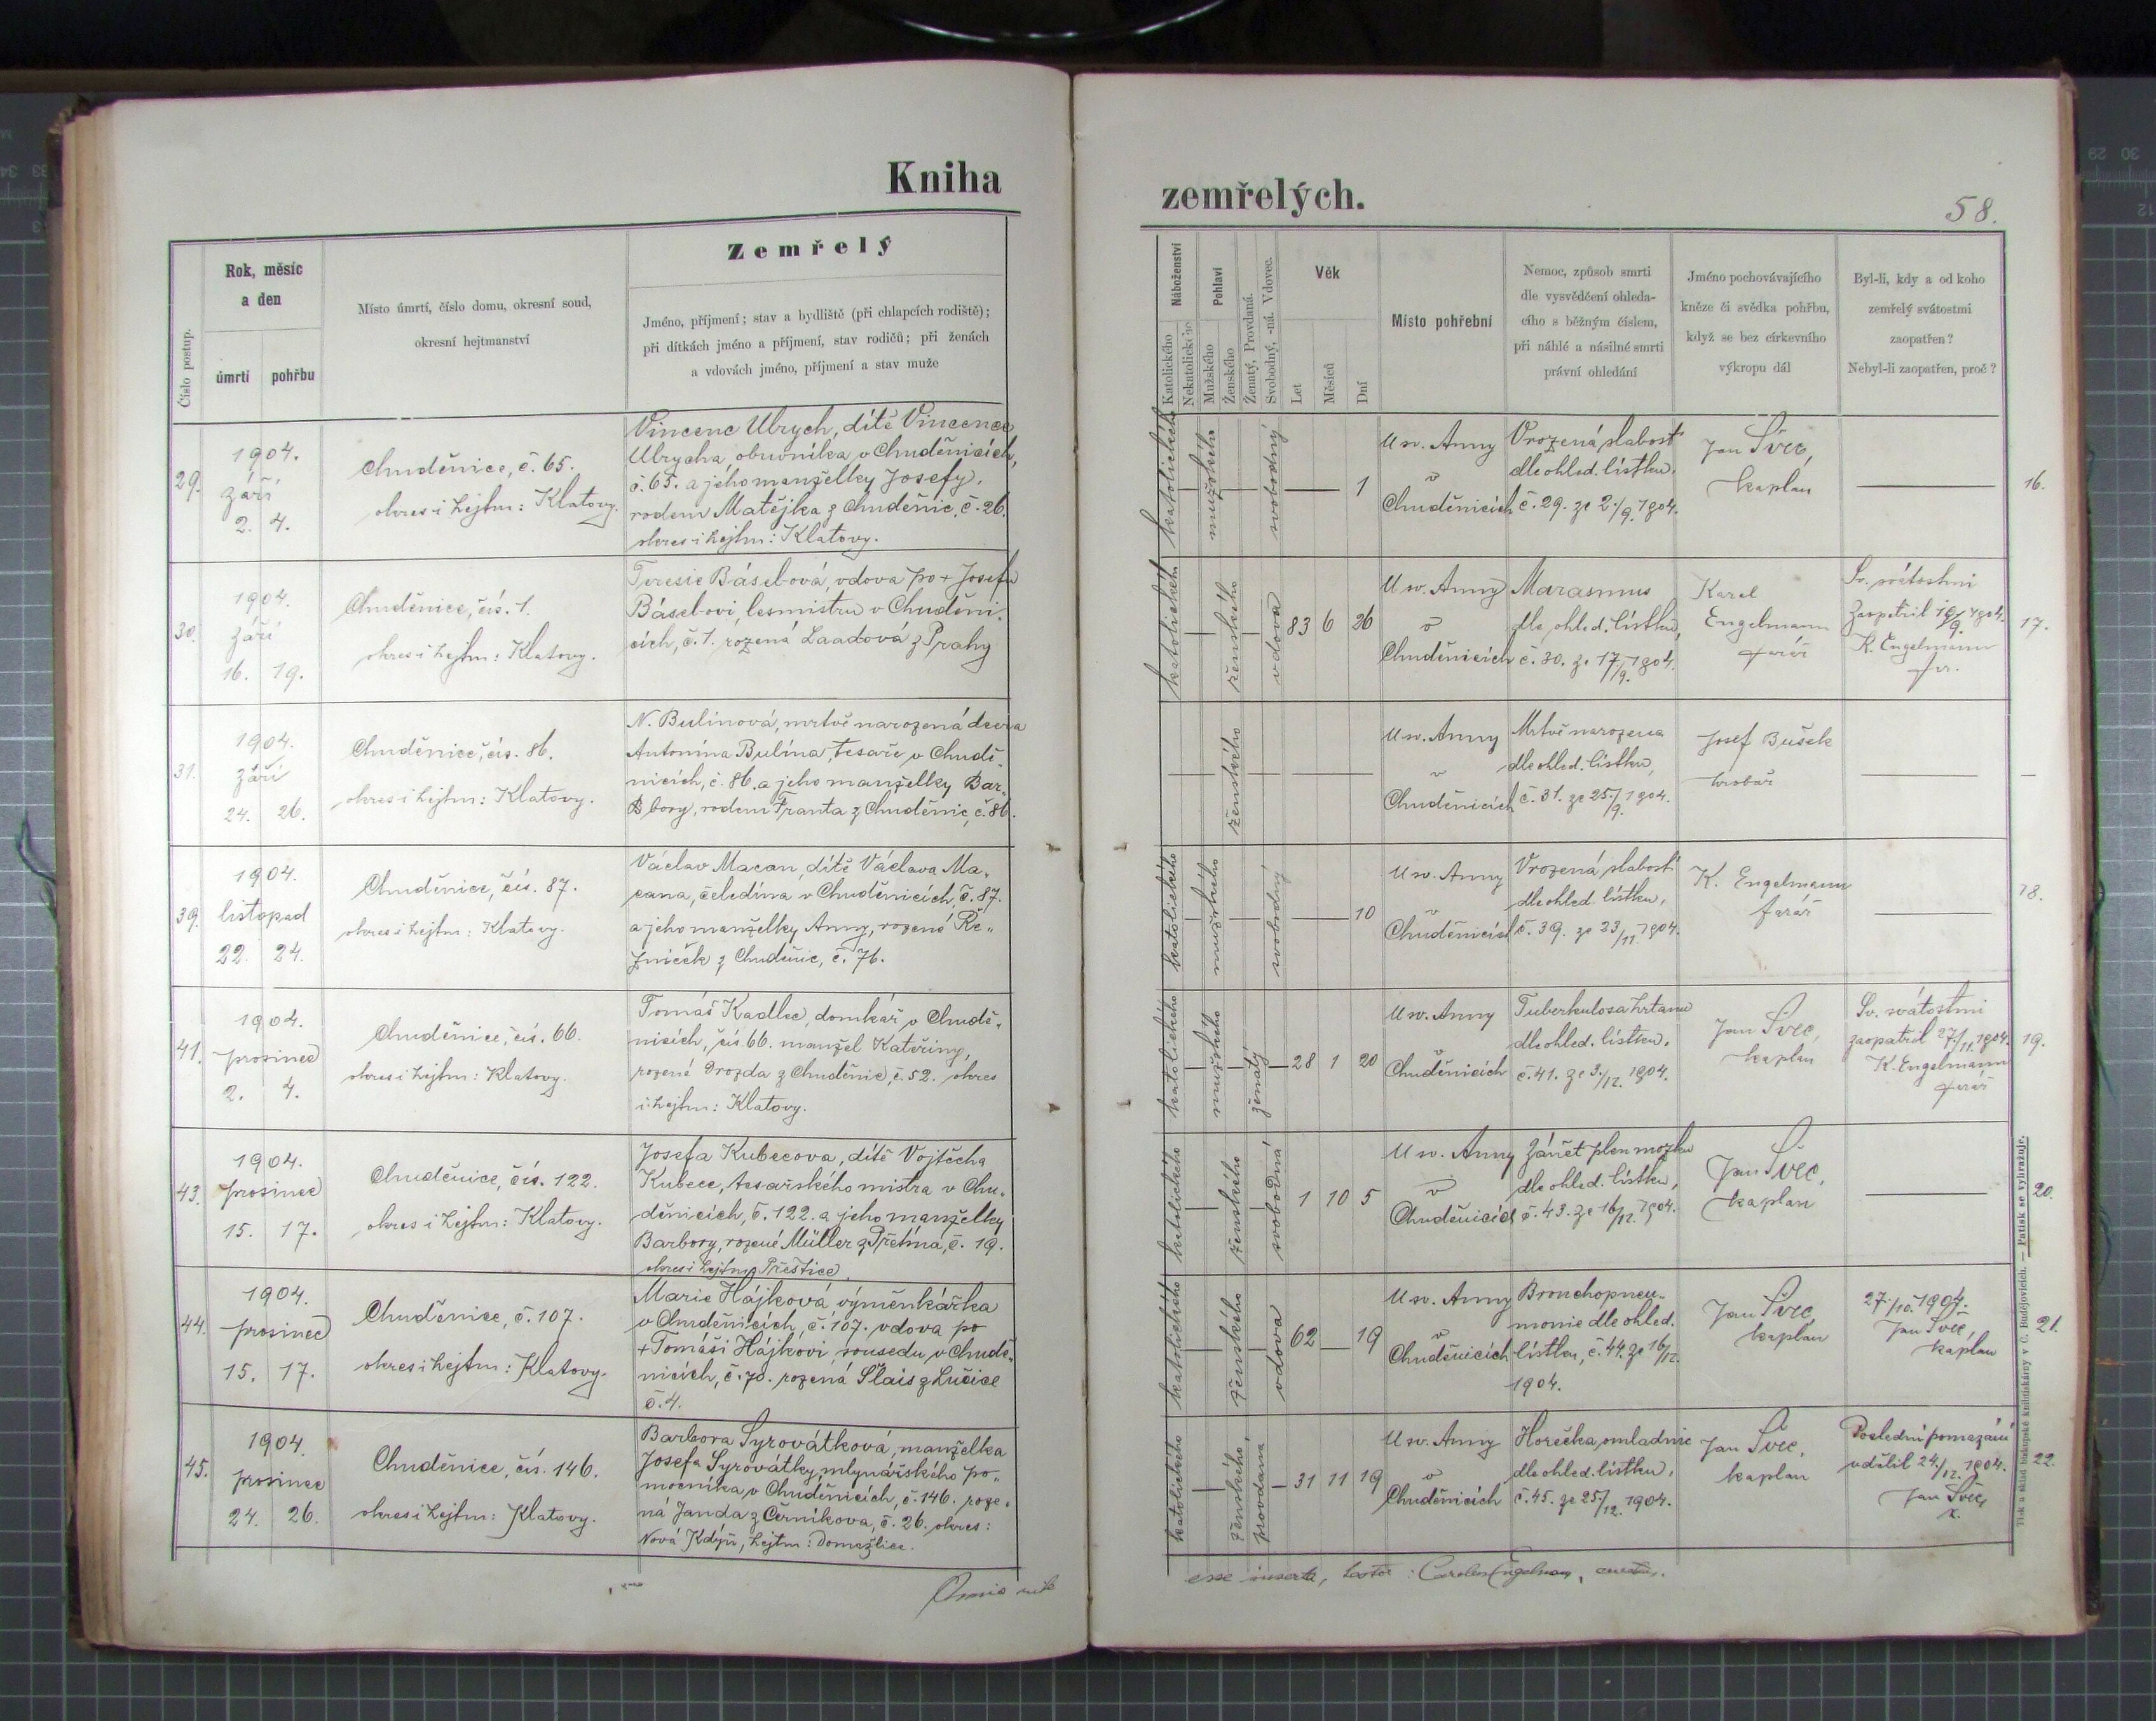 Kniha
zemřelých.
58.
Číslo postup.
Rok, měsíc
a den
úmrtí
pohřbu
Místo úmrtí, číslo domu, okresní soud,
okresní hejtmanství
Zemřelý
Jméno, příjmení; stav a bydliště (při chlapcích rodiště);
při dítkách jméno a příjmení, stav rodičů; při ženách
a vdovách jméno, příjmení a stav muže
Náboženství
Katolického
Nekatolického
Pohlaví
Mužského
Ženského
Ženatý, Provdaná.
Svobodný, -ná. Vdovec.
Věk
Let
Měsíců
Dní
Místo pohřební
Nemoc, způsob smrti
dle vysvědčení ohleda-
cího s běžným číslem,
při náhlé a násilné smrti
právní ohledání
Jméno pochovávajícího
kněze či svědka pohřbu,
když se bez církevního
výkropu dál
Byl-li, kdy a od koho
zemřelý svátostmi
zaopatřen?
Nebyl-li zaopatřen, proč?
29.
1904.
září
2. 4.
Chuděnice, č. 65.
okres i hejtm: Klatovy.
Vincenc Ulrych, dítě Vincence
Ulrycha, obuvníka v Chuděnicích,
č. 65. a jeho manželky Josefy,
rodem Matějka z Chuděnic, č. 26.
okres i hejtm: Klatovy.
katolického
mužského
svobodný
1
U sv. Anny
v
Chuděnicích
Vrozená slabost
dle ohled. lístku,
č. 29. ze 2./9. 1904.
Jan Švec,
kaplan
16.
30.
1904.
září
16. 19.
Chuděnice, čís. 1.
okres i hejtm: Klatovy.
Teresie Básel-ová, vdova po + Josefu
Básel-ovi, lesmistru v Chuděni-
cích, č. 1. rozená Laadová z Prahy
katolického
ženského
vdova
83 6 26
U sv. Anny
v
Chuděnicích
Marasmus
dle ohled. lístku,
č. 30. ze 17./9. 1904.
Karel
Engelmann
farář
Sv. svátostmi
zaopatřil 16/9. 1904.
K. Engelmann
far.
17.
31.
1904.
září
24. 26.
Chuděnice, čís. 86.
okres i hejtm: Klatovy.
N. Bulínová, mrtvě narozená dcera
Antonína Bulína, tesaře v Chudě-
nicích, č. 86. a jeho manželky Bar-
bory, rodem Franta z Chuděnic, č. 86.
ženského
U sv. Anny
v
Chuděnicích
Mrtvě narozena
dle ohled. lístku,
č. 31. ze 25./9. 1904.
Josef Bušek
hrobař
39.
1904.
listopad
22. 24.
Chuděnice, čís. 87.
okres i hejtm: Klatovy.
Václav Macan, dítě Václava Ma-
cana, čeledína v Chuděnicích, č. 87.
a jeho manželky Anny, rozené Ře-
zníček z Chuděnic, č. 76.
katolického
mužského
svobodný
10
U sv. Anny
v
Chuděnicích
Vrozená slabost
dle ohled. lístku,
č. 39. ze 23/11. 1904.
K. Engelmann
farář
18.
41.
1904.
prosinec
2. 4.
Chuděnice, čís. 66.
okres i hejtm: Klatovy.
Tomáš Kadlec, domkář v Chudě-
nicích, čís 66. manžel Kateřiny,
rozené Drozda z Chuděnic, č. 52. okres
i hejtm: Klatovy.
katolického
mužského
ženatý
28 1 20
U sv. Anny
v
Chuděnicích
Tuberkulosa hrtanu
dle ohled. lístku,
č. 41. ze 3./12. 1904.
Jan Švec,
kaplan
Sv. svátostmi
zaopatřil 27./11. 1904.
K. Engelmann
farář
19.
43.
1904.
prosinec
15. 17.
Chuděnice, čís. 122.
okres i hejtm: Klatovy.
Josefa Kubecova, dítě Vojtěcha
Kubece, tesařského mistra v Chu-
děnicích, č. 122. a jeho manželky
Barbory, rozené Müller z Přetína, č. 19.
okres i hejtm: Přeštice.
katolického
ženského
svobodná
1 10 5
U sv. Anny
v
Chuděnicích
Zánět plen mozku
dle ohled. lístku,
č. 43. ze 16/12. 1904.
Jan Švec,
kaplan
20.
44.
1904.
prosinec
15. 17.
Chuděnice, č. 107.
okres i hejtm: Klatovy.
Marie Hájková, výměnkářka
v Chuděnicích, č. 107. vdova po
+ Tomáši Hájkovi, sousedu v Chudě-
nicích, č. 70. rozená Šlais z Lučice
č. 4.
katolického
ženského
vdova
62 19
U sv. Anny
v
Chuděnicích
Bronchopneu-
monie dle ohled.
lístku, č. 44. ze 16/12.
1904.
Jan Švec,
kaplan
27./10. 1904.
Jan Švec,
kaplan
21.
45.
1904.
prosinec
24. 26.
Chuděnice, čís. 146.
okres i hejtm: Klatovy.
Barbora Syrovátková, manželka
Josefa Syrovátky, mlynářského po-
mocníka v Chuděnicích, č. 146. roze-
ná Janda z Černíkova, č. 26. okres:
Nová Kdýň, hejtm: Domažlice.
katolického
ženského
provdaná
31 11 19
U sv. Anny
v
Chuděnicích
Horečka omladnic
dle ohled. lístku,
č. 45. ze 25./12. 1904.
Jan Švec,
kaplan
Poslední pomazání
udělil 24./12. 1904.
Jan Švec,
k.
22.
Omnia rite
esse inserta, testor: Carolus Engelman, curatus.
Tisk a sklad biskupské knihtiskárny v Č. Budějovicích. — Patisk se vyhražuje.